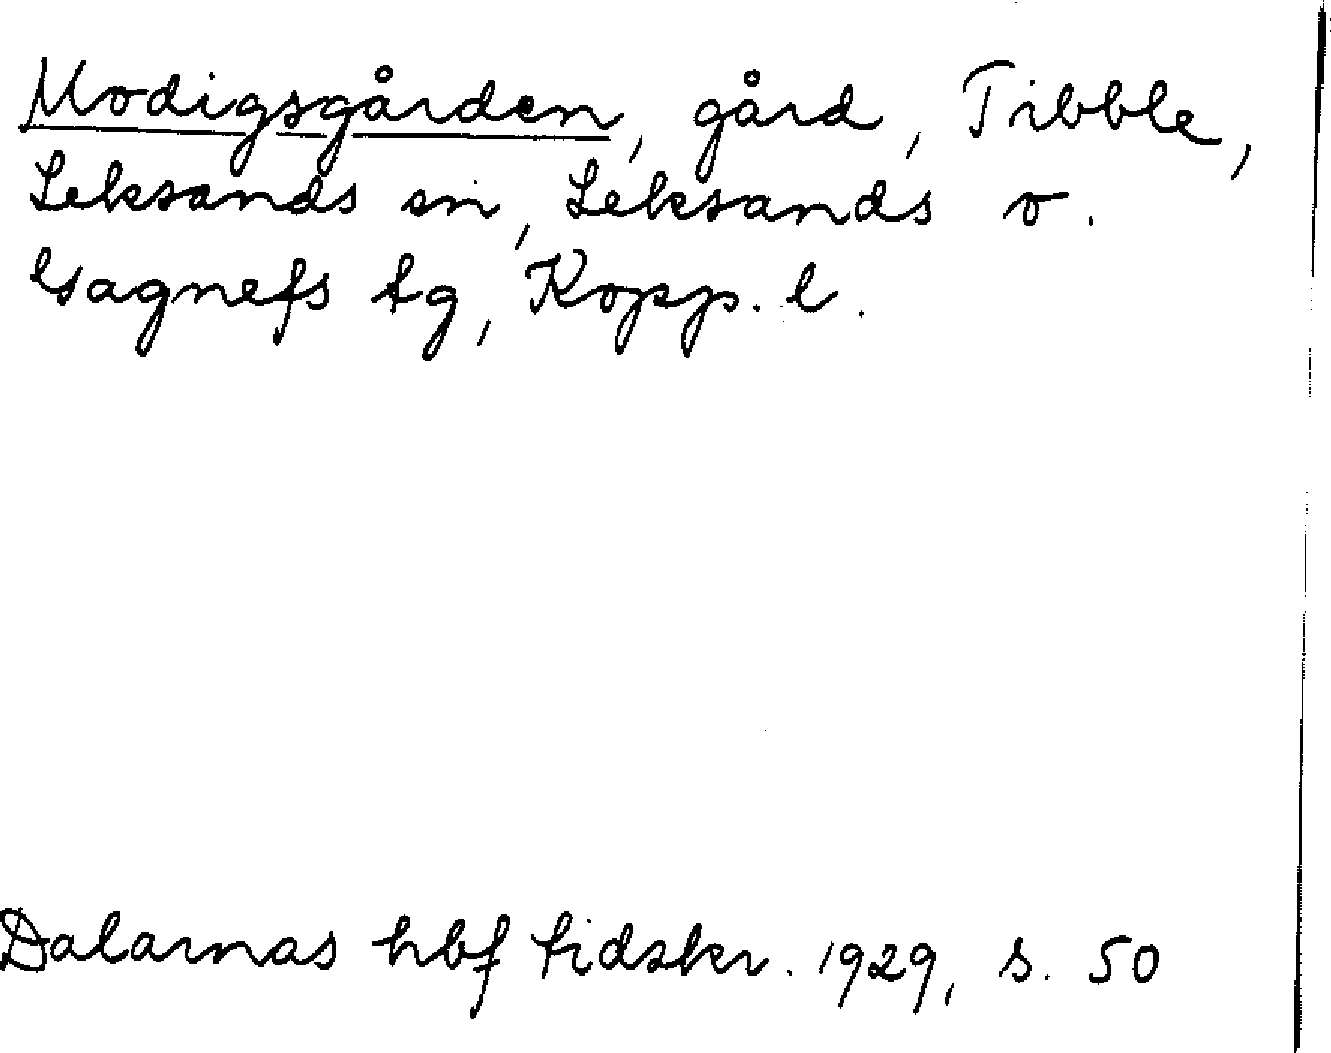 Modigsgården, gård, Tibble,
Leksands sn, Leksands o.
Gagnefs tg, Kopp. l.
Dalarnas hbf tidskr. 1929, s. 50